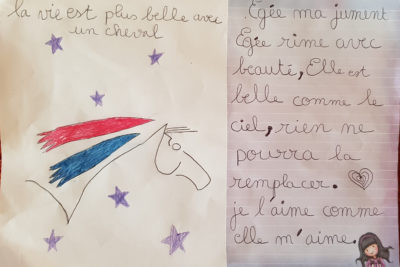 la vie est plus belle avec
un cheval
.Egée ma jument
Egée rime avec
beauté, Elle est
belle comme le
ciel, rien ne
pourra la
remplacer.
je l'aime comme
elle m'aime.